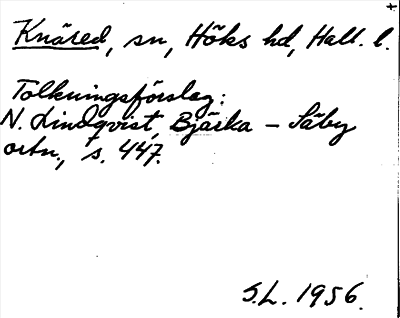 Knäred, sn, Höks hd, Hall. l.
Tolkningsförslag:
N. Lindqvist, Bjärka – Säby
ortn., s. 447.
S.L. 1956.